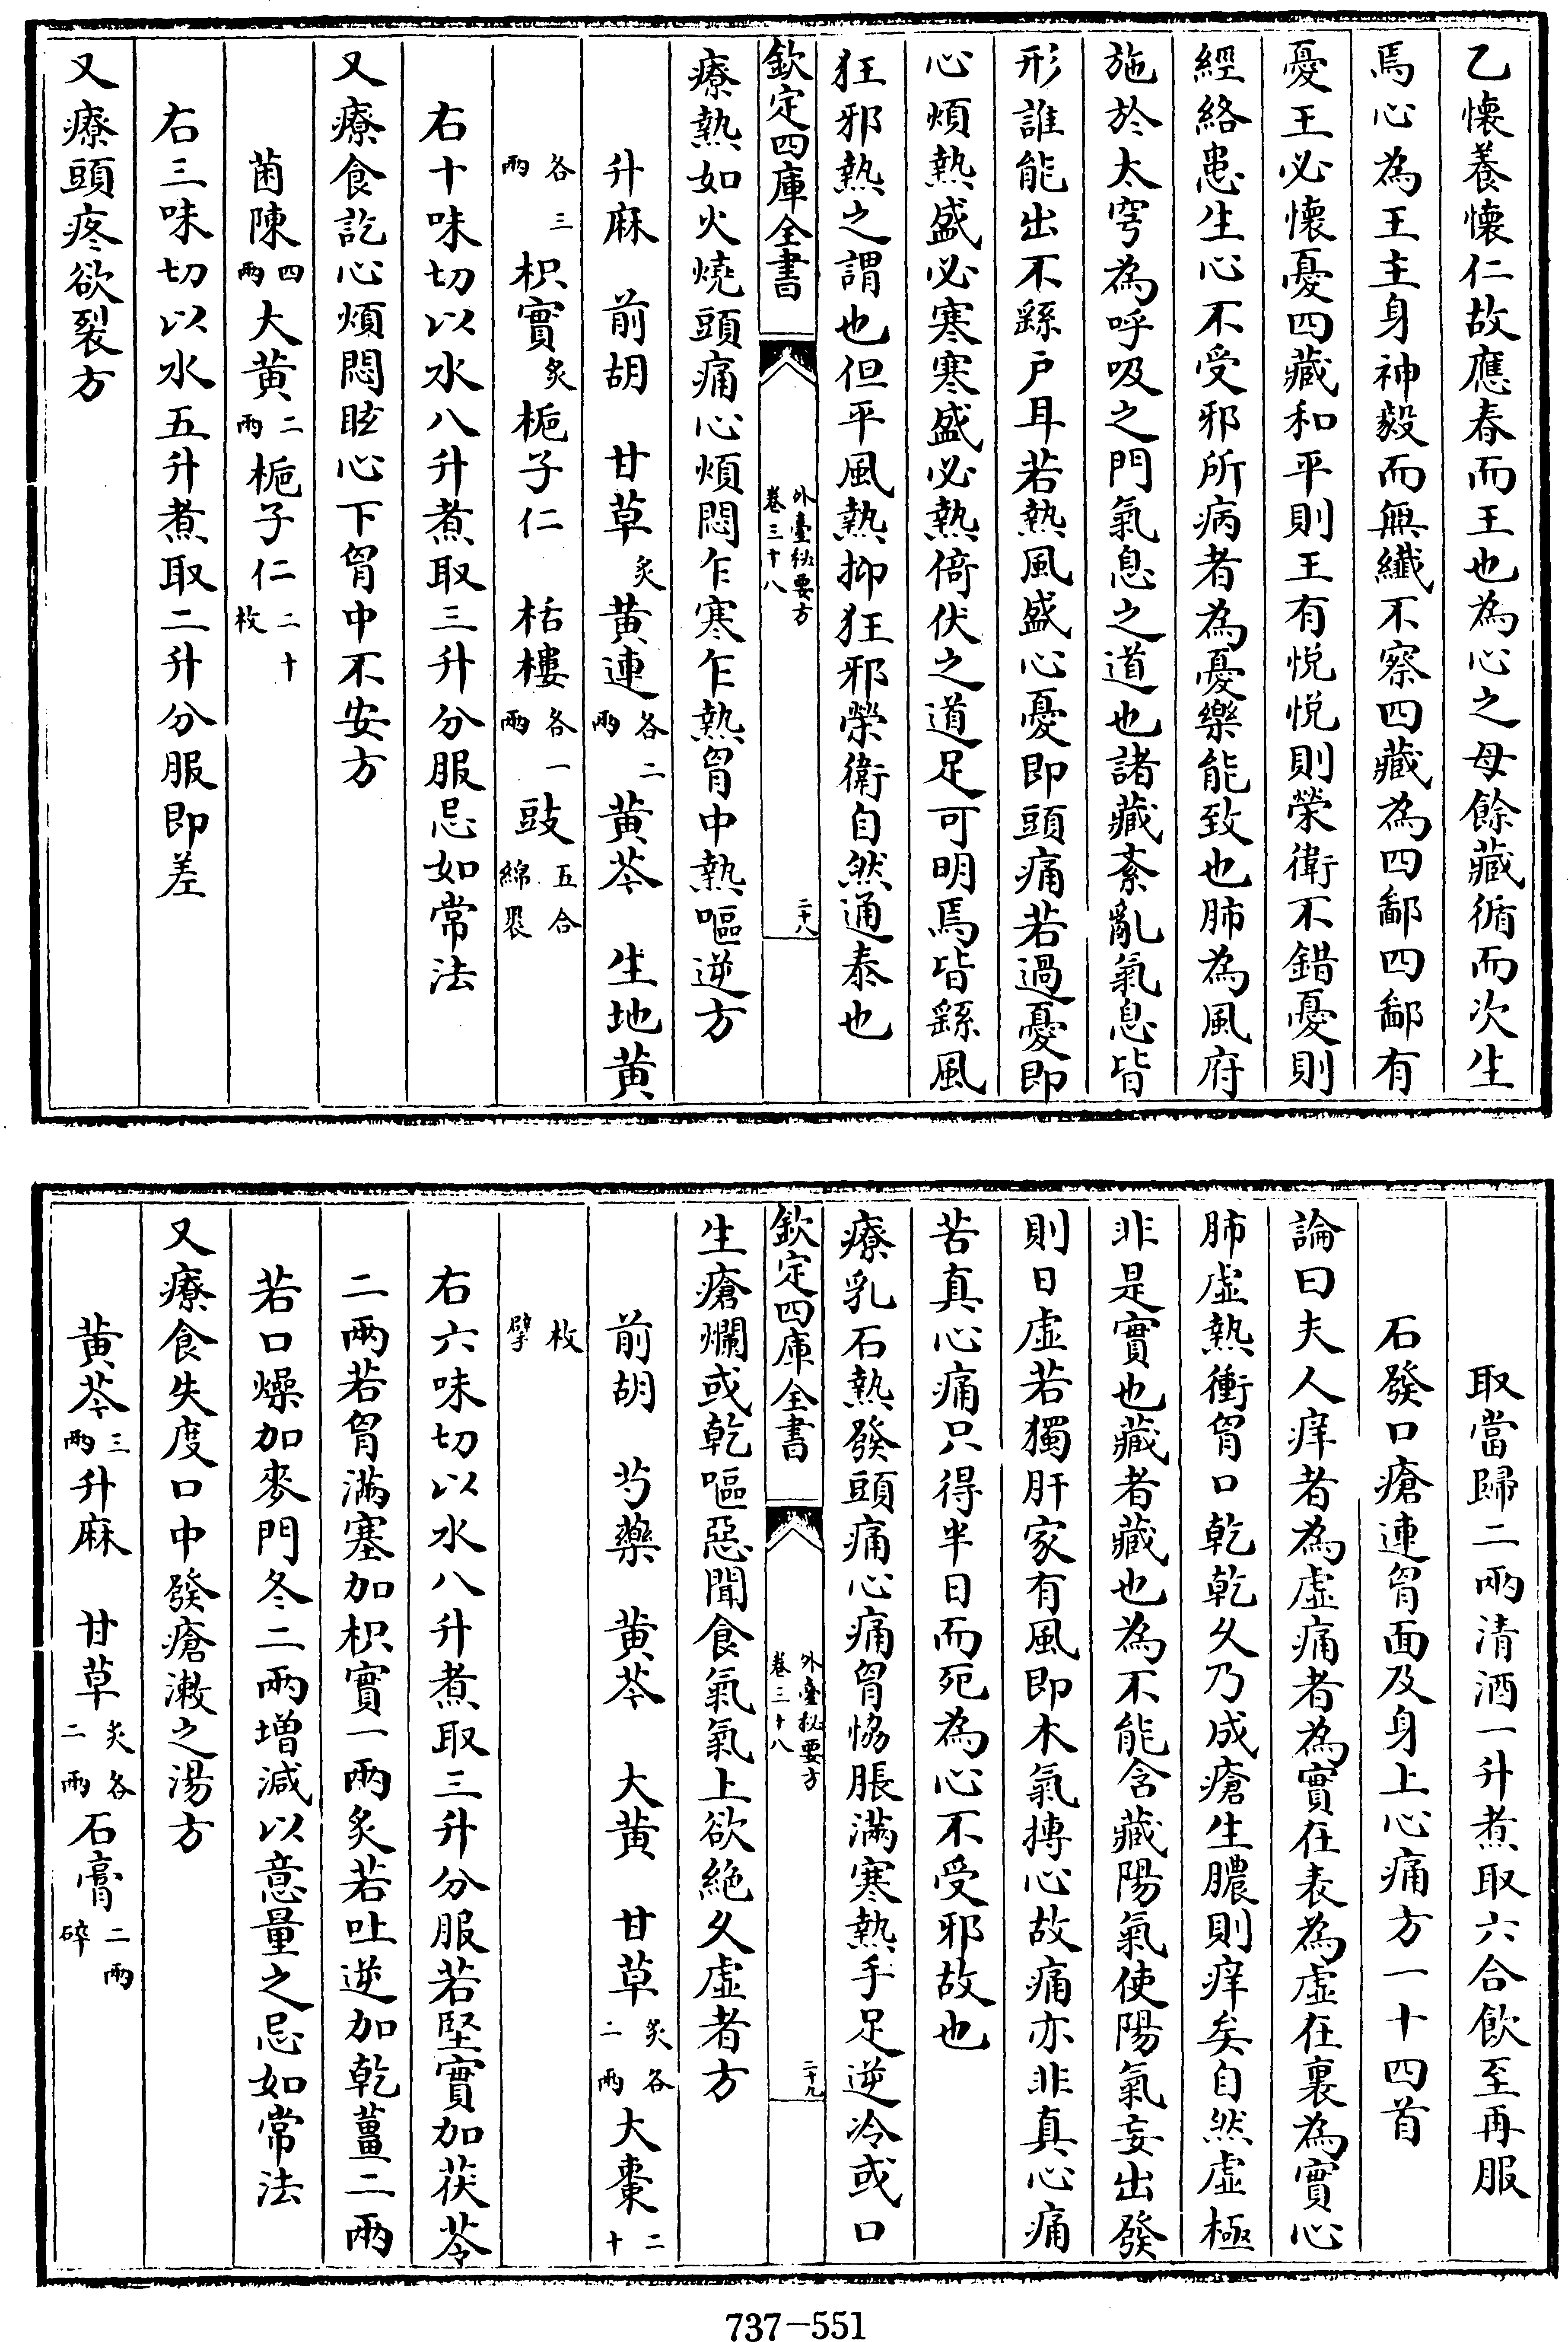 乙懷養懷仁故應春而王也為心之母餘藏循而次生
焉心為王主身神毅而無纎不察四藏為四鄙四鄙有
憂王必懷憂四藏和平則王有悅悅則榮衛不錯憂則
經絡患生心不受邪所病者為憂樂能致也肺為風府
施於太窍為呼吸之門氣息之道也諸藏紊亂氣息皆
形誰能出不繇戶耳若熱風盛心憂即頭痛若過憂即
心煩熱盛必寒寒盛必熱倚伏之道足可明焉皆繇風
狂邪熱之謂也但平風熱抑狂邪榮衛自然通泰也
欽定四庫全書 外臺秘要方 卷三十八 二十八
療熱如火燒頭痛心煩悶乍寒乍熱胷中熱嘔逆方
升麻 前胡 甘草炙 黄連各二兩 黄芩 生地黄
各三兩 枳實炙 梔子仁 栝樓各一兩 豉五合綿裹
右十味切以水八升煮取三升分服忌如常法
又療食訖心煩悶眩心下胷中不安方
茵陳四兩 大黄二兩 梔子仁二十枚
右三味切以水五升煮取二升分服即差
又療頭疼欲裂方
取當歸二兩清酒一升煮取六合飲至再服
石發口瘡連胷面及身上心痛方一十四首
論曰夫人痒者為虛痛者為實在表為虛在裏為實心
肺虛熱衝胷口乾乾久乃成瘡生膿則痒矣自然虛極
非是實也藏者藏也為不能含藏陽氣使陽氣妄出發
則日虛若獨肝家有風即木氣搏心故痛亦非真心痛
苦真心痛只得半日而死為心不受邪故也
療乳石熱發頭痛心痛胷恊脹滿寒熱手足逆冷或口
欽定四庫全書 外臺秘要方 卷三十八 二十九
生瘡爛或乾嘔惡聞食氣氣上欲絕久虛者方
前胡 芍藥 黄芩 大黄 甘草炙各二兩 大棗二十
枚擘
右六味切以水八升煮取三升分服若堅實加茯苓
二兩若胷滿塞加枳實一兩炙若吐逆加乾薑二兩
若口燥加麥門冬二兩增減以意量之忌如常法
又療食失度口中發瘡漱之湯方
黄芩三兩 升麻 甘草炙各二兩 石膏二兩碎
737-551